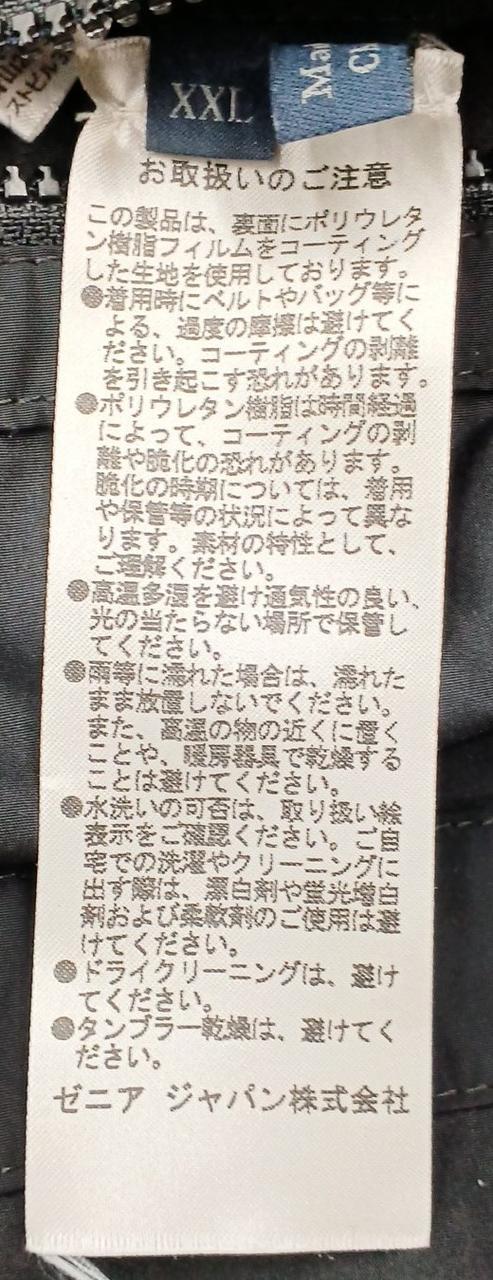 ストビル
XXL
Ma
Cl
お取扱いのご注意
この製品は、裏面にポリウレタ
ン樹脂フィルムをコーティング
した生地を使用しております。
●着用時にベルトやバッグ等に
よる、過度の摩擦は避けてく
ださい。コーティングの剥離
を引き起こす恐れがあります。
●ポリウレタン樹脂は時間経過
によって、コーティングの剥
離や脆化の恐れがあります。
脆化の時期については、着用
や保管等の状況によって異な
ります。素材の特性として、
ご理解ください。
●高温多湿を避け通気性の良い、
光の当たらない場所で保管し
てください。
●雨等に濡れた場合は、濡れた
まま放置しないでください。
また、高温の物の近くに置く
ことや、暖房器具で乾燥する
ことは避けてください。
●水洗いの可否は、取り扱い絵
表示をご確認ください。ご自
宅での洗濯やクリーニングに
出す際は、漂白剤や蛍光増白
剤および柔軟剤のご使用は避
けてください。
●ドライクリーニングは、避け
てください。
●タンブラー乾燥は、避けてく
ださい。
ゼニア ジャパン株式会社